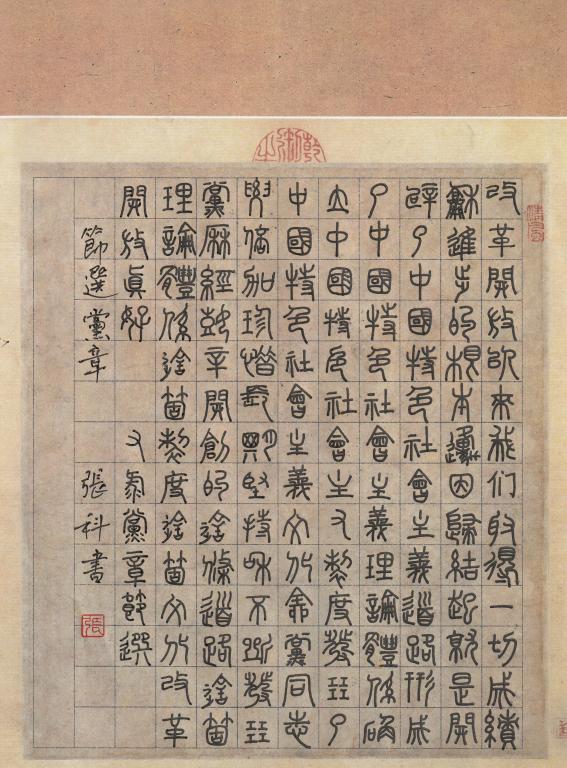 改革開放以來我们取得一切成績
龢進步的根本邍因歸結起就是開
辟了中國特色社會主義道路形成
了中國特色社會主義理論體係確
立中國特色社會主又制度發㠭了
中國特色社會主義文化全黨同志
要倍加珍惜長期堅持和不斷發㠭
黨厤經艱辛開創的這條道路這箇
理論體係這箇制度這箇文化改革
開放眞好 又黨章節選
節選黨章 張科書
張